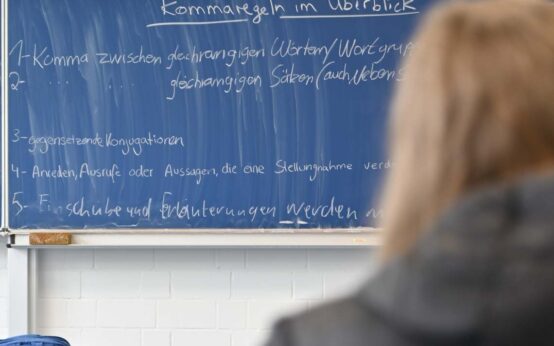 Kommaregeln im Überblick
1- Komma zwischen gleichrangigen Wörten/Wortgrup
2- .. .. .. gleichrangigen Sätzen (auch Nebens
3- gegensetzende Konjugationen
4- Anreden, Ausrufe oder Aussagen, die eine Stellungnahme verd
5- Einschübe und Erläuterungen werden m